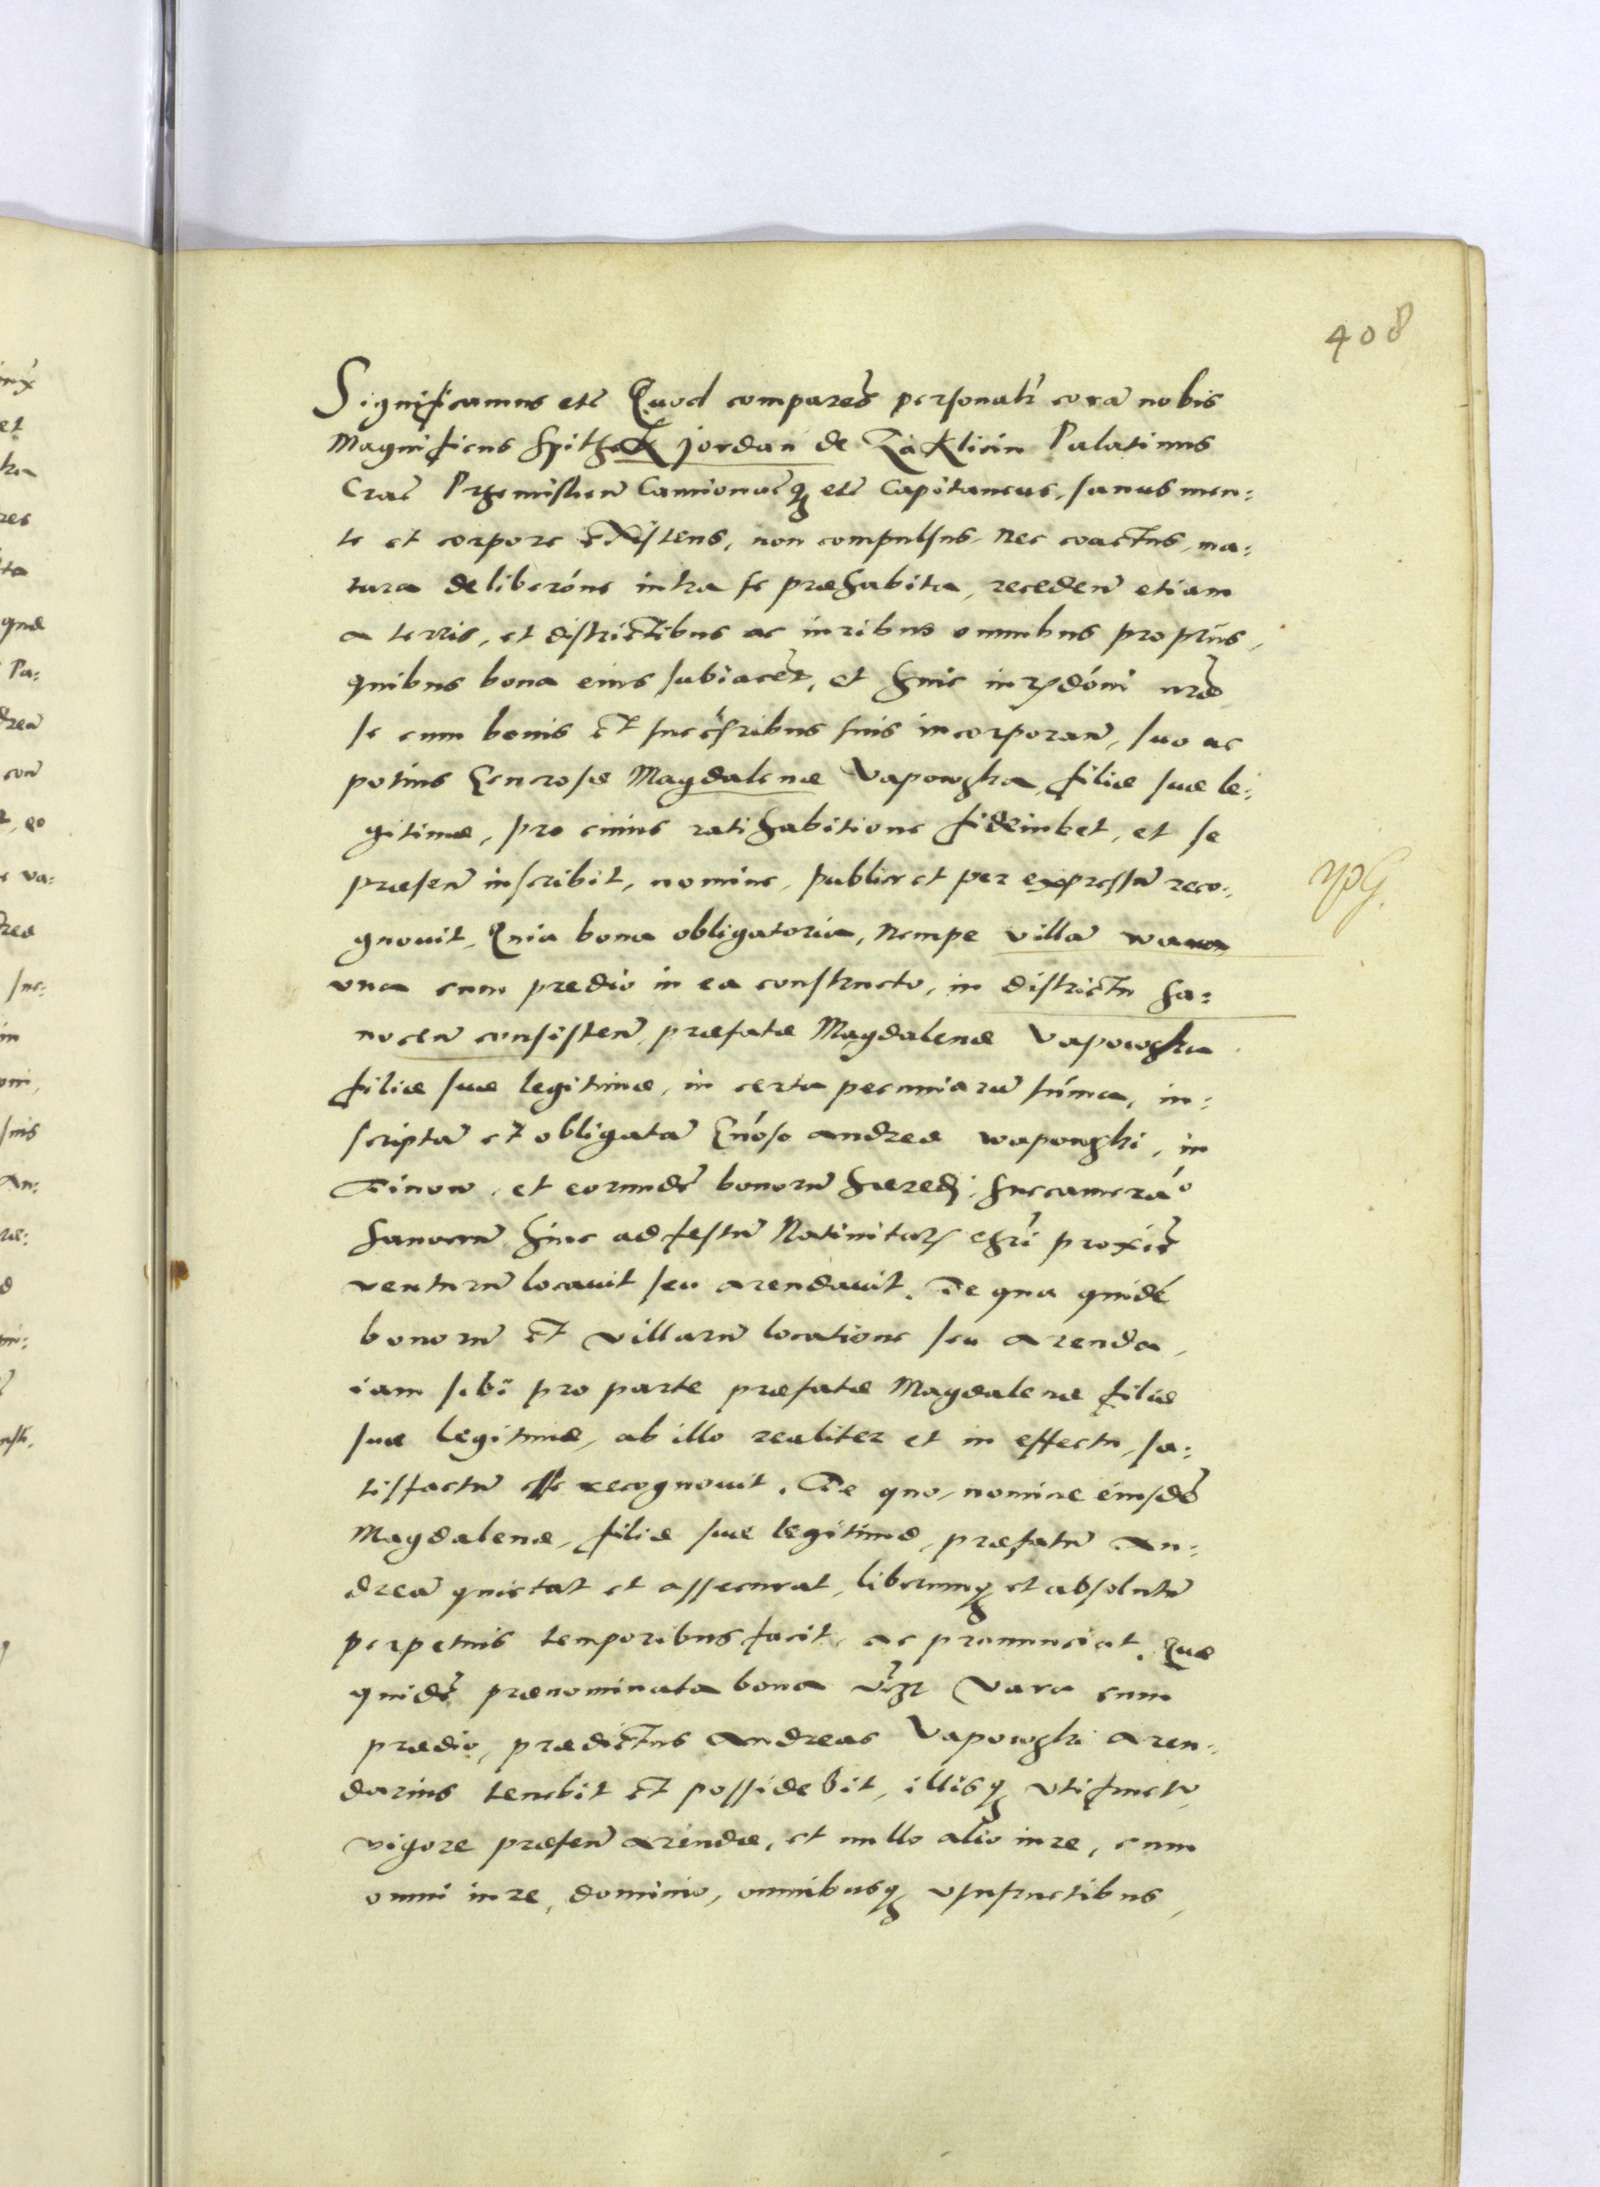 408
Significamus etc Quod comparens personalr cora nobis
Magnificus Spithek Jordan de Zakliczin Palatinus
Crac Przemislien Camionacq etc Capitaneus, sanus men:
te et corpore existens, non compulsus nec coactus, ma:
tura deliberone intra se præhabita, recedens etiam
a terris, et districtibus ac iuribus omnibus propriis,
quibus bona eius subiacet, et huic iurisdoni nrae
se cum bonis et succesribus suis incorporans, suo ac
potius Generosæ Magdalenæ Vapowska, filiæ suæ le:
gitimæ, pro cuius ratihabitione fideiubet, et se
præsen inscribit, nomine, publice et per expressum reco:
gnouit, Quia bona obligatoria, nempe villam
una cum predio in ea constructo, in districtu Sa:
nocen consisten, præfatæ Magdalenæ Vapowska
filiæ suæ legitimæ, in certa pecuniaru summa, in:
scriptam et obligatam Gnoso Andreæ Waposwki, in
Dinow, et eorundem bonorum hæredi, Succamerario
Sanocen hinc ad festum Natiuitatis Chri proxime
venturum locauit seu arendauit. De qua quidem
bonorum et villarum locatione seu arenda,
iam sibi pro parte præfatæ Magdalenæ filiæ
suæ legitimæ, ab illo realiter et in effectu, sa:
tisfactum esse recognouit. De quo, nomine eiusdem
Magdalenæ, filiæ suæ legitimæ, præfatum An:
dream quietat et assecurat, liberumq et absolutum
perpetuis temporibus facit, ac pronunciat. Quæ
quidem prænominata bona vizt Vara cum
prædio, prædictus Andreas Vapowski aren:
darius tenebit et possidebit, illisq utifruetur,
vigore præsen arendæ, et nullo alio iure, cum
omni iure, dominio, omnibusq usufructibus,